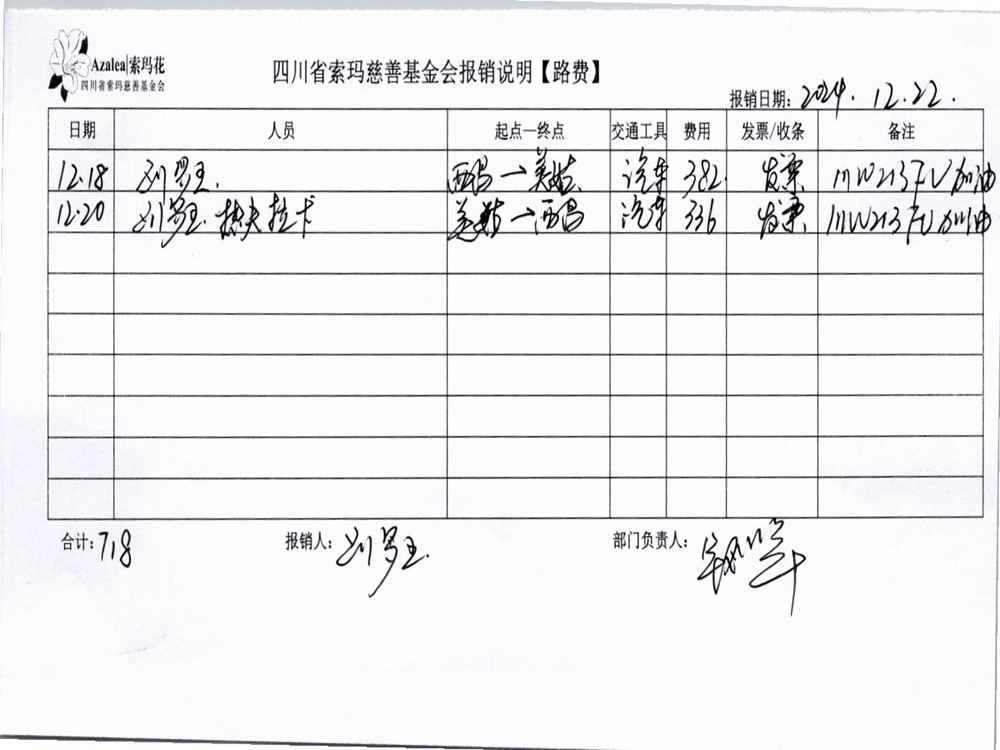 Azalea|索玛花
四川省索玛慈善基金会
四川省索玛慈善基金会报销说明【路费】
报销日期：2024.12.22.
日期 人员 起点—终点 交通工具 费用 发票/收条 备注
12.18 刘罗王. 西昌→美姑. 汽车 382. 发票 川W213FV加油
12.20 刘罗王. 拉卡 美姑→西昌 汽车 336 发票 川W213FV加油
合计：718 报销人：刘罗王. 部门负责人：